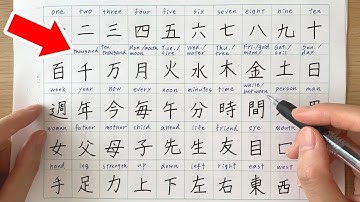 one two three four five six seven eight nine ten
二 三 四 五 六 七 八 九 十
thousand ten thousand Mon/moon month Tue./fire Wed/water Thu/tree Fri/gold money Sat./soil Sun./day
百 千 万 月 火 水 木 金 土 日
week year now every noon minutes time while/between person man
週 年 今 毎 午 分 時 間
woman father mother child ahead life friend eye mouth
女 父 母 子 先 生 友 目 口
hand leg strength up down left right east west
手 足 力 上 下 左 右 東 西